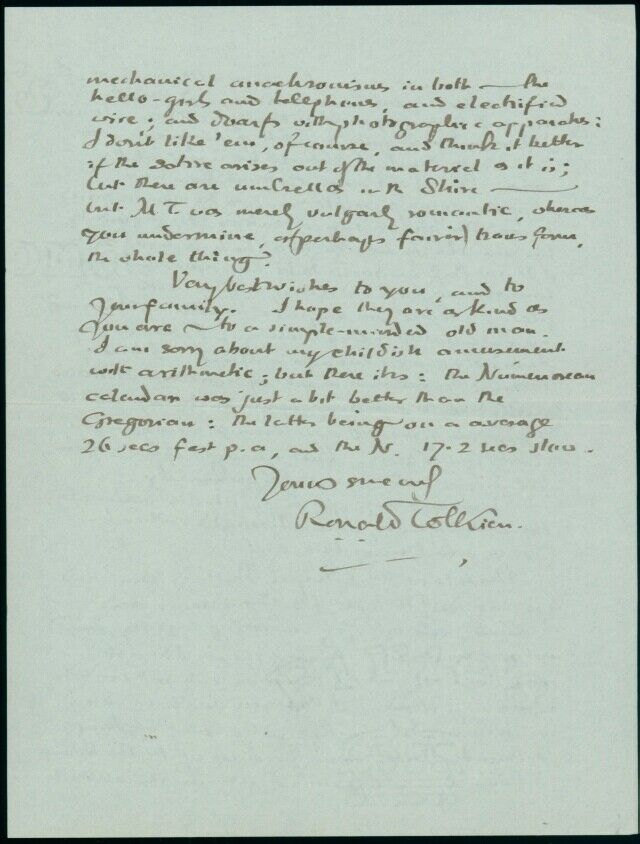 mechanical anachronisms in both — the
hello-girls and telephones, and electrified
wire; and dwarfs with photographic apparatus:
I don't like 'em, of course, and think it better
if the satire arises out of the material as it is;
but there are umbrellas in the Shire —
but M T. was merely vulgarly romantic, whereas
you undermine, or (perhaps fairer) transform,
the whole thing.
Very best wishes to you, and to
your family. I hope they are as kind as
you are — to a simple-minded old man.
I am sorry about my childish amusement
with arithmetic; but there it is: the Númenorean
calendar was just a bit better than the
Gregorian: the latter being on a average
26 secs fast p.a, and the N. 17.2 secs slow.
Yours
Ronald Tolkien.